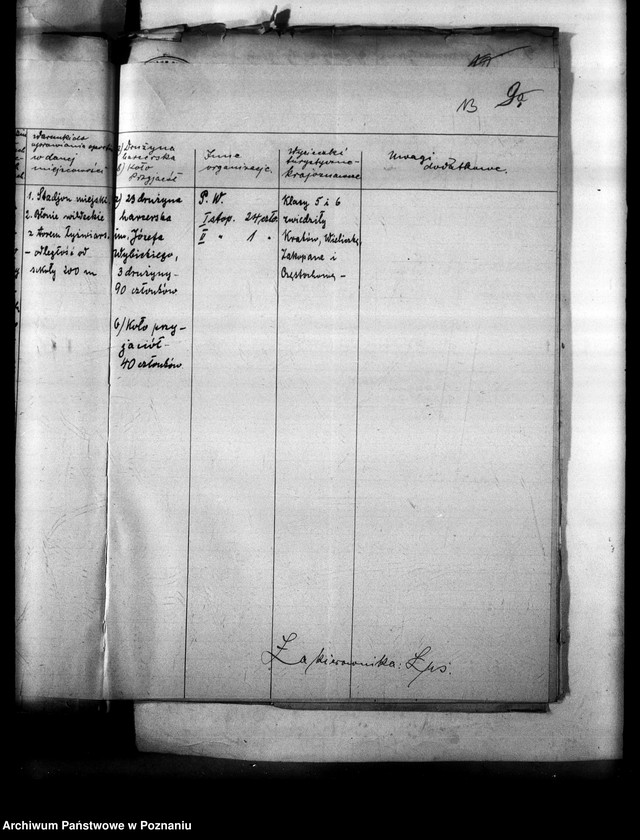 NB 9a
Warunki do
uprawiania sportu
w danej
miejscowości
a) Drużyna
harcerska
b) Koło
Przyjaciół
Inne
organizacje.
Wycieczki
turystyczno-
krajoznawcze
Uwagi
dodatkowe.
1. Stadjon miejski.
2. Błonie wildeckie
z torem łyżwiars.
- odległość od
szkoły 200 m
a) 23 drużyna
harcerska
im. Józefa
Wybickiego,
3 drużyny-
90 członków
b) Koło przy-
jaciół-
40 członków
P. W.
I stop. 24 czło.
II " 1 "
Klasy 5 i 6
zwiedziły
Kraków, Wieliczkę,
Zakopane i
Częstochowę -
Za kierownika:
Archiwum Państwowe w Poznaniu